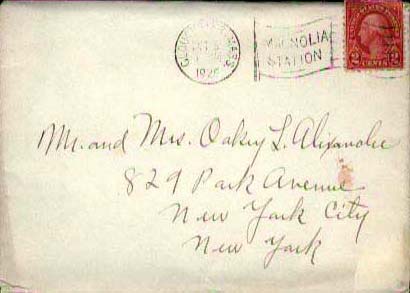 GLOUCESTER MASS.
OCT
192
MAGNOLIA
STATION
UNITED STATES POSTAGE
2 CENTS 2
Mr. and Mrs. Oakey L. Alexander
829 Park Avenue
New York City
New York